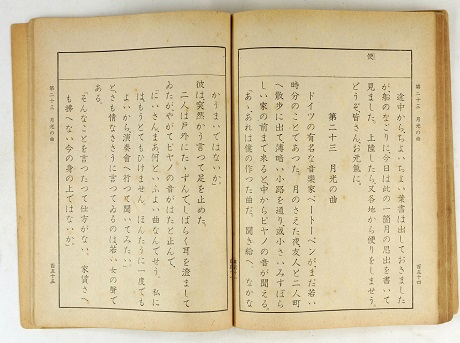 途中からちょいちょい葉書は出しておきました
が、船のなごりに、今日は此の一箇月の思出を書いて
見ました。上陸したら、又各地から便りをしませう。
どうぞ、皆さん、お元気に。
第二十三 月光の曲
ドイツの有名な音楽家ベートーベンが、まだ若い
時分のことであつた。月のさえた夜、友人と二人町
へ散歩に出て、薄暗い小路を通り、或小さいみすぼら
しい家の前まで来ると、中からピヤノの音が聞える。
「あゝ、あれは僕の作つた曲だ。聞き給へ。なかな
第二十三 月光の曲
百五十四
かうまいではないか。」
彼は突然かう言つて足を止めた。
二人は戸外にたゝずんでしばらく耳を澄まして
ゐたが、やがてピヤノの音がはたと止んで、
「にいさん、まあ何といふよい曲なんでせう。私に
はもうとてもひけません。ほんたうに一度でも
よいから、演奏會へ行つて聞いてみたい。」
と、さも情なささうに言つてゐるのは若い女の聲で
ある。
「そんなことを言つたつて仕方がない。家賃さへ
も拂へない今の身の上ではないか。」
第二十三 月光の曲
百五十五